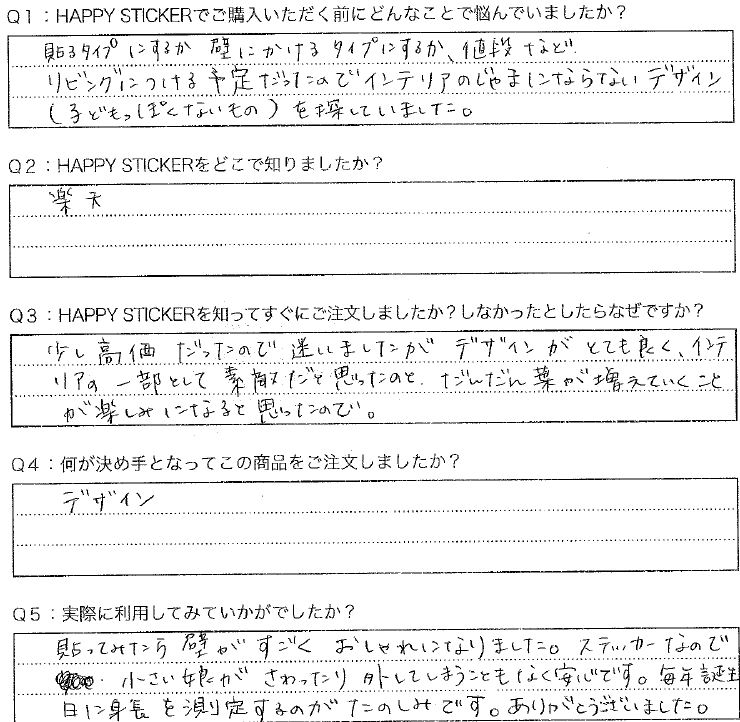 Q1：HAPPY STICKERでご購入いただく前にどんなことで悩んでいましたか？
貼るタイプにするか 壁にかけるタイプにするか、値段など
リビングにつける予定だったのでインテリアのじゃまにならないデザイン
(子どもっぽくないもの)を探していました。
Q2：HAPPY STICKERをどこで知りましたか？
楽天
Q3：HAPPY STICKERを知ってすぐにご注文しましたか？しなかったとしたらなぜですか？
少し高価だったので迷いましたがデザインがとても良く、インテ
リアの一部として素敵だと思ったのと、だんだん葉が増えていくこと
が楽しみになると思ったので。
Q4：何が決め手となってこの商品をご注文しましたか？
デザイン
Q5：実際に利用してみていかがでしたか？
貼ってみたら壁がすごくおしゃれになりました。ステッカーなので
小さい娘がさわったり外してしまうこともなく安心です。毎年誕生
日に身長を測定するのがたのしみです。ありがとうございました。